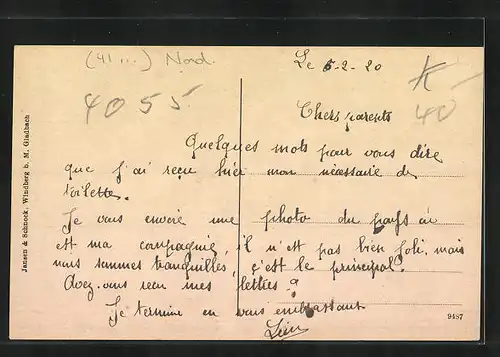 (41...) Nord.
4055
40
Le 5-2-20
Chers parents
Quelques mots pour vous dire
que j'ai reçu hier mon nécessaire de
toilette.
Je vous envoie une photo du pays où
est ma compagnie, il n'est pas bien joli, mais
nous sommes tranquilles, c'est le principal.
Avez-vous reçu mes lettres ?
Je termine en vous embrassant
Jansen & Schnock, Windberg b. M. Gladbach
9487